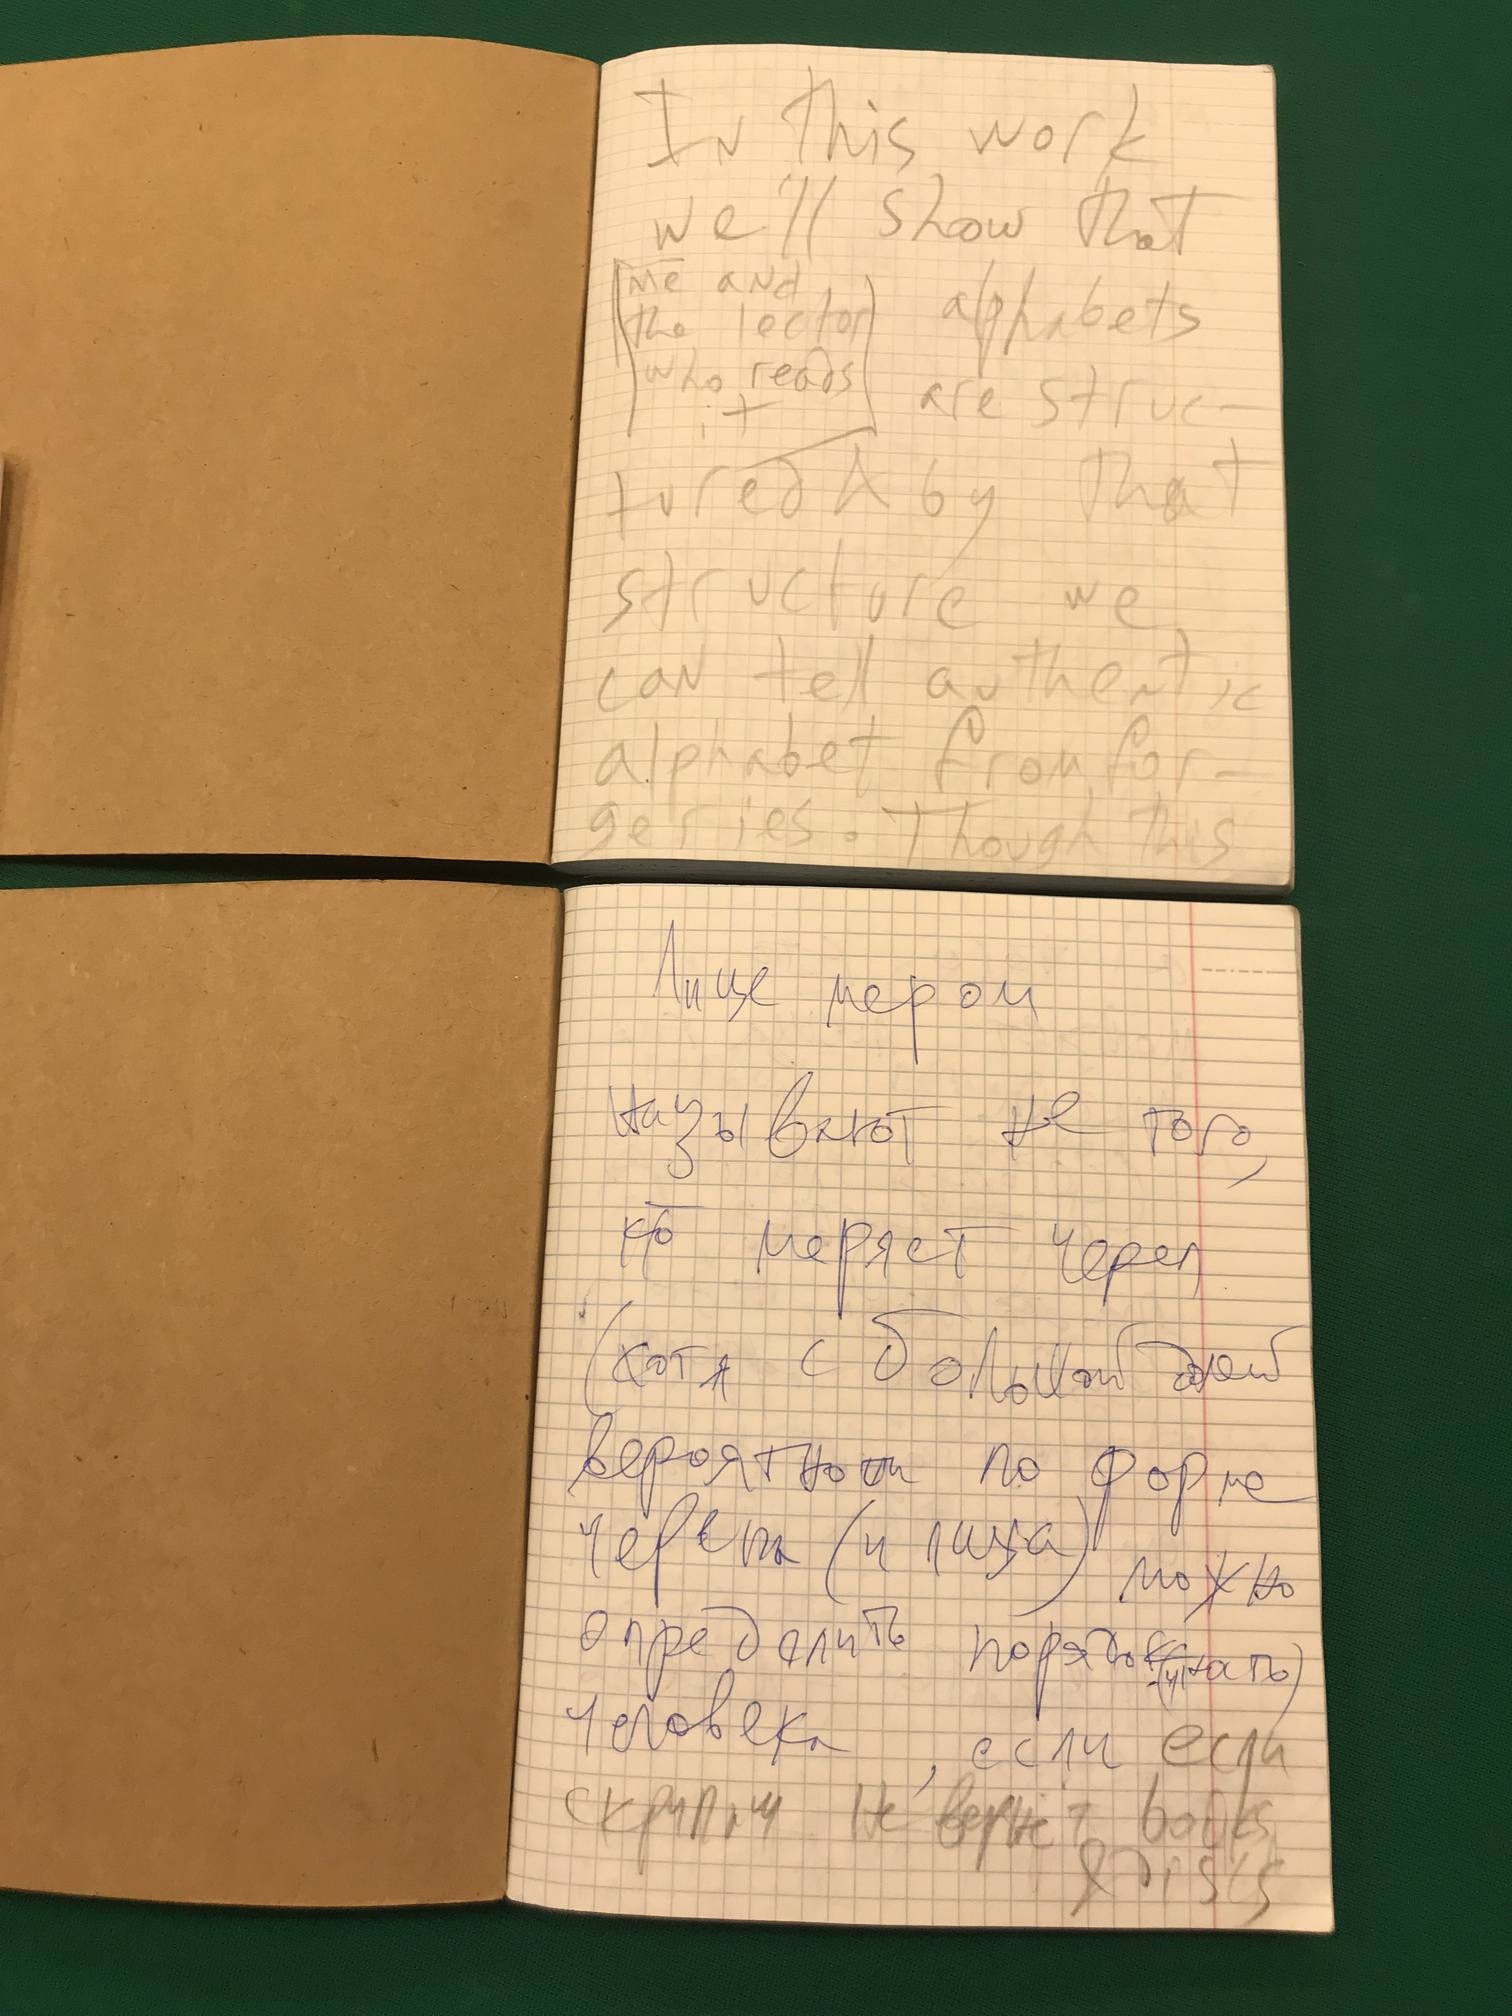 In this work
we'll show that
(me and
the lector
who reads
it)
alphabets
are struc-
tured & by that
structure we
can tell authentic
alphabet from for-
geries. Though this
Лице мером
называют не того,
кто меряет череп
(хотя с большой долей
вероятности по форме
черепа (и лица) можно
определить порядок(чнать)
человека, если если
скрипач не вернёт books
& discs